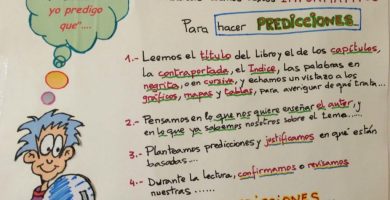 yo predigo
que"....
Para hacer PREDICCIONES
1.- Leemos el título del libro y el de los capítulos,
la contraportada, el Índice, las palabras en
negrita, o en cursiva, y echamos un vistazo a los
gráficos, mapas y tablas, para averiguar de qué trata...
2.- Pensamos en lo que nos quiere enseñar el autor, y
en lo que ya sabemos nosotros sobre el tema.....
3.- Planteamos predicciones y justificamos en qué están
basadas....
4.- Durante la lectura, confirmamos o revisamos
nuestras .....